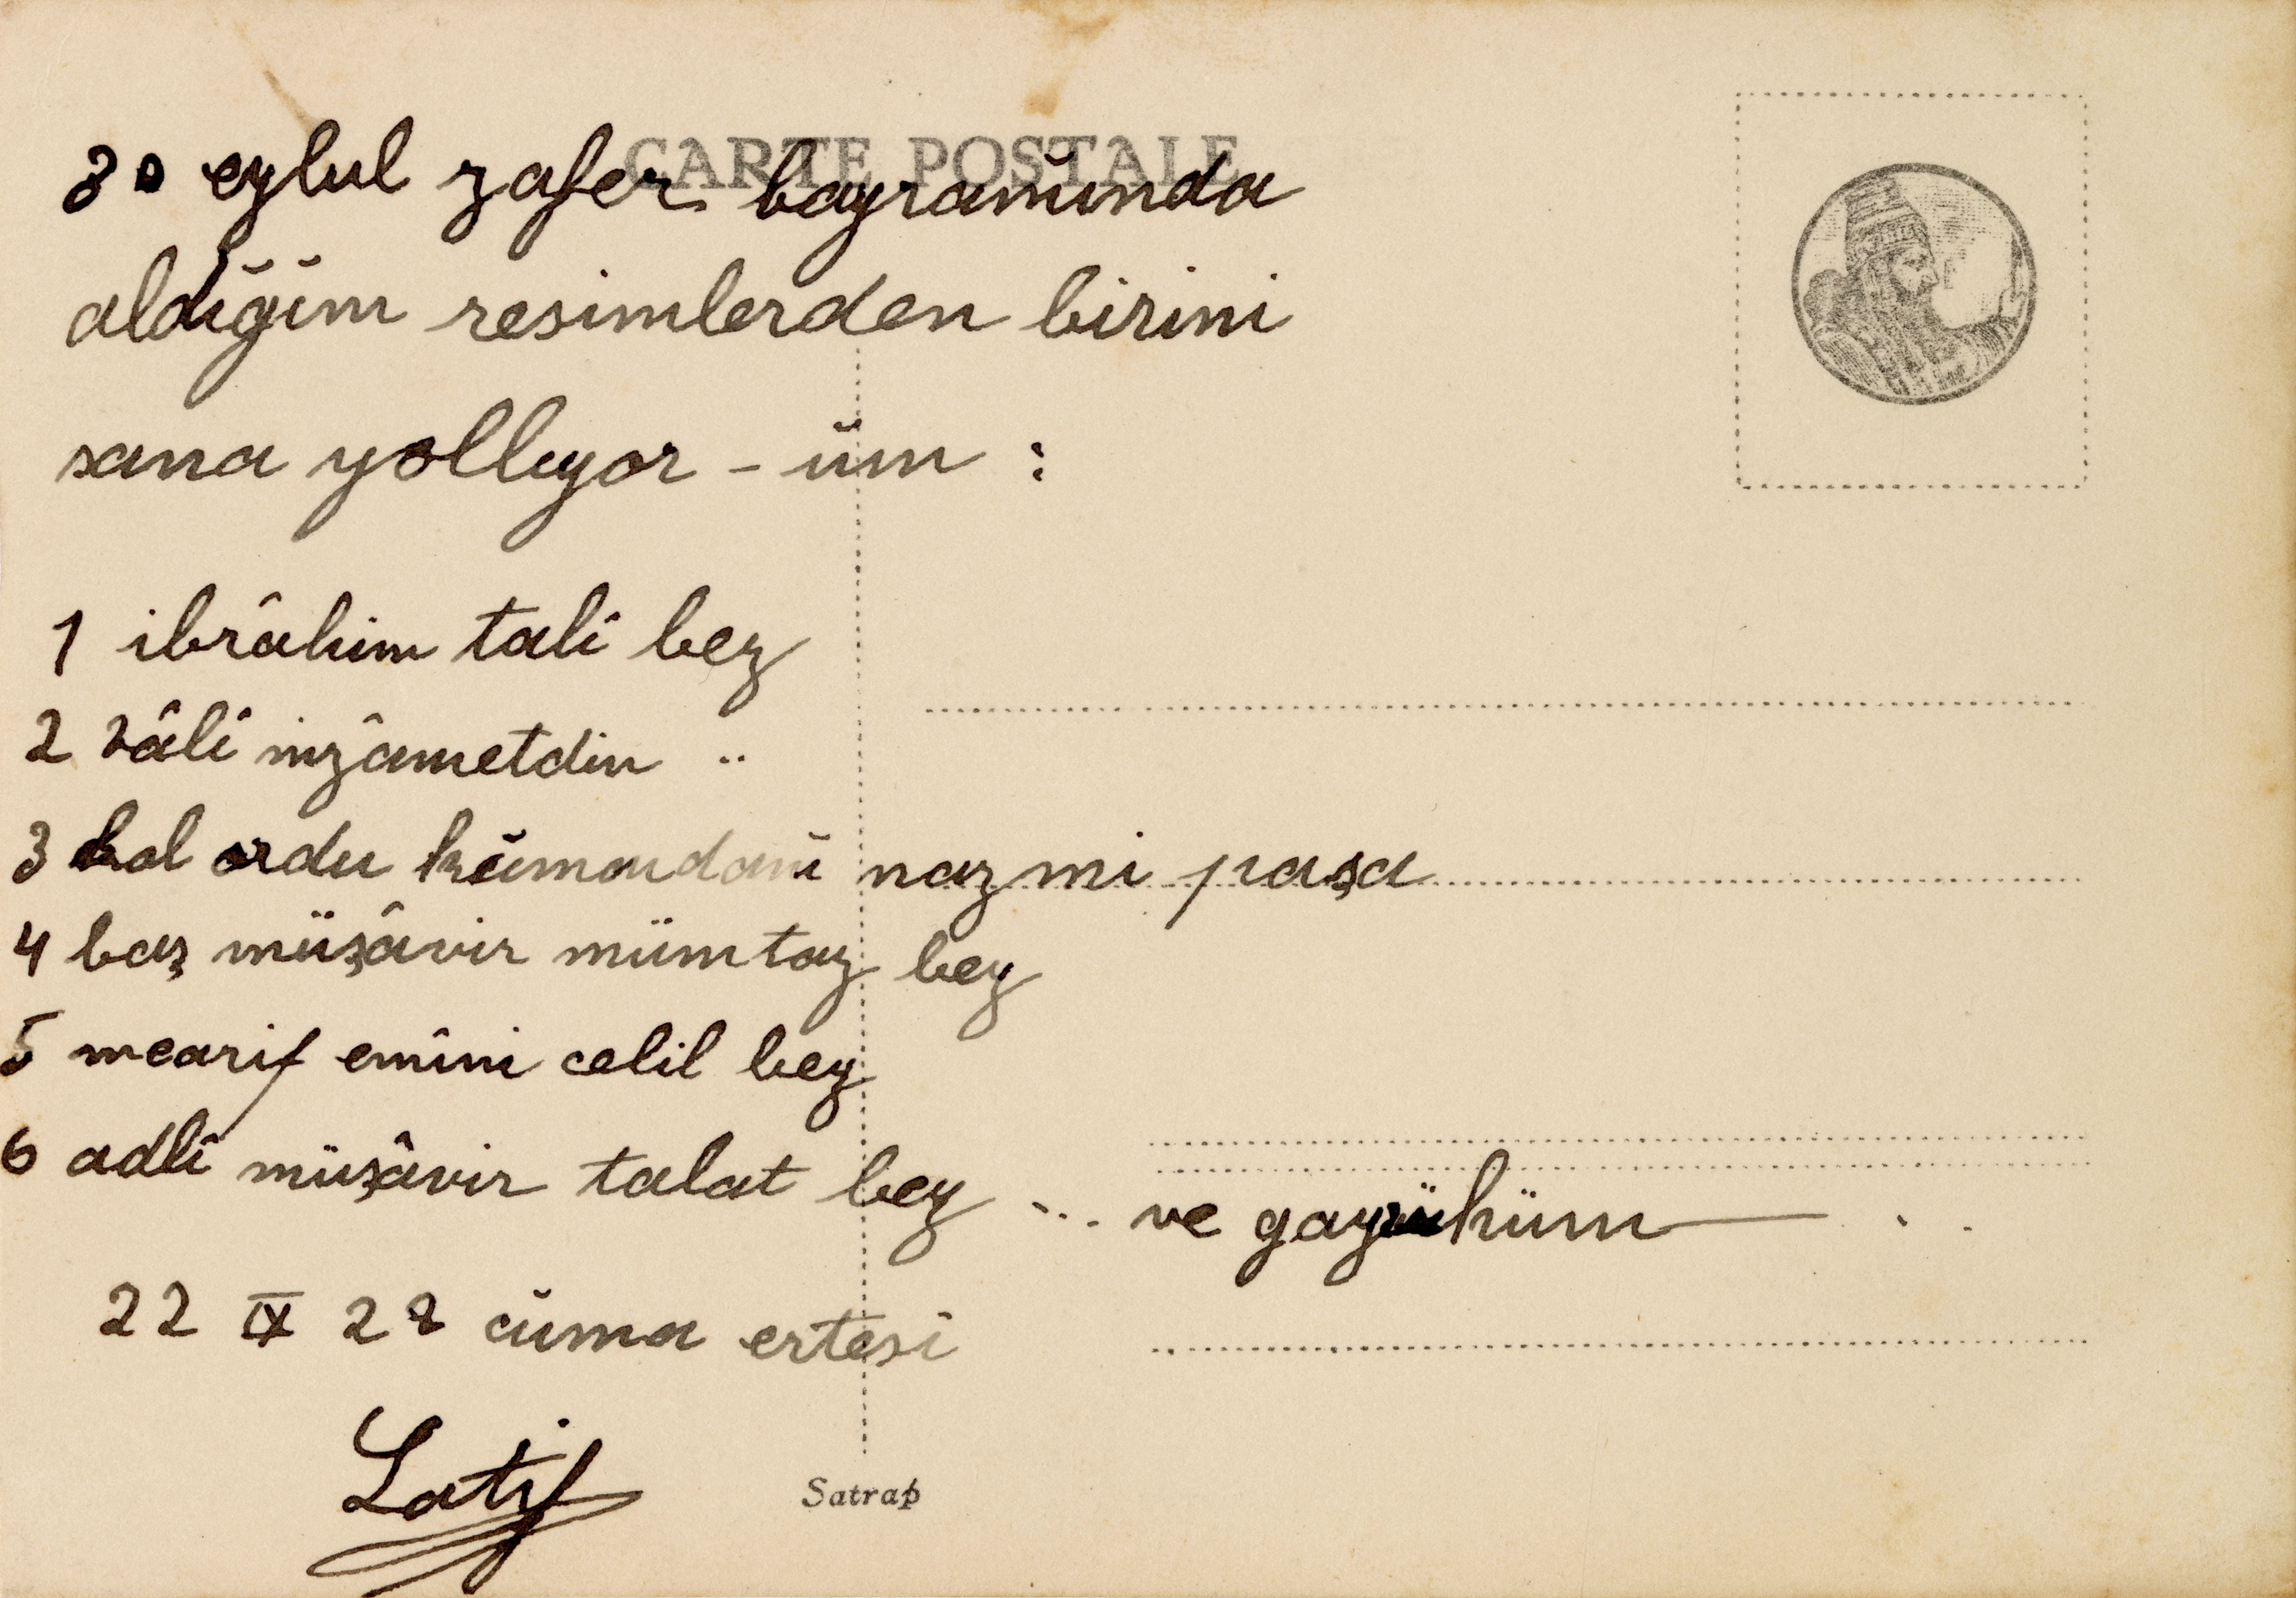 CARTE POSTALE
30 eylul zafer bayramında
aldığım resimlerden birini
sana yolluyor - üm :
1 ibrâhim tali bey
2 vâli nizâmetdin "
3 kol ordu kümandanı nazmi paşa
4 baş müşâvir mümtaz bey
5 mearif emîni celil bey
6 adlî müşâvir talat bey ... ve gayrühüm — . .
22 IX 28 cüma ertesi
Latif
Satrap